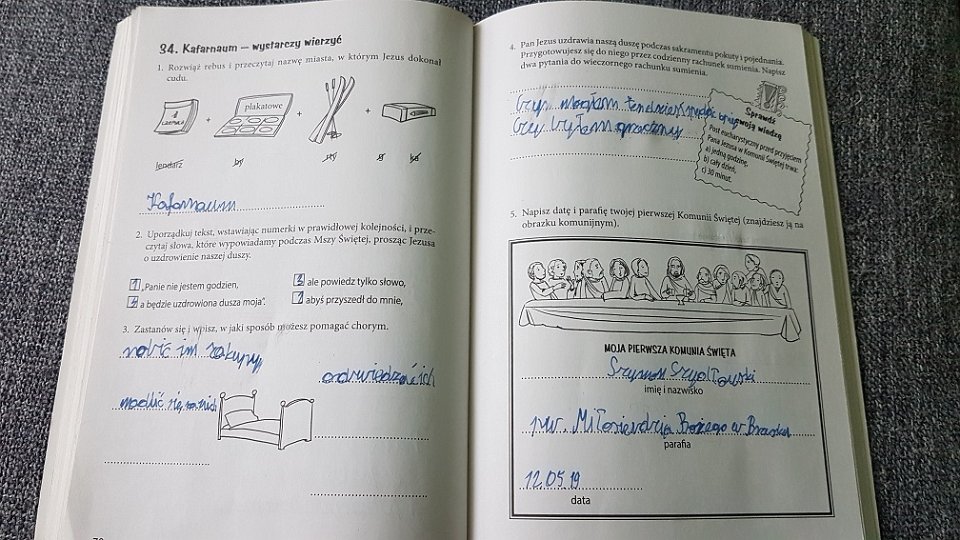 34. Kafarnaum – wystarczy wierzyć
1. Rozwiąż rebus i przeczytaj nazwę miasta, w którym Jezus dokonał
cudu.
1
CZERWCA
+
plakatowe
+
+
lendarz
by
rty
g
ka
Kafarnaum
2. Uporządkuj tekst, wstawiając numerki w prawidłowej kolejności, i prze-
czytaj słowa, które wypowiadamy podczas Mszy Świętej, prosząc Jezusa
o uzdrowienie naszej duszy.
1 „Panie nie jestem godzien,
3 ale powiedz tylko słowo,
4 a będzie uzdrowiona dusza moja”.
2 abyś przyszedł do mnie,
3. Zastanów się i wpisz, w jaki sposób możesz pomagać chorym.
robić im zakupy
odwiedzać ich
modlić się za nich
4. Pan Jezus uzdrawia naszą duszę podczas sakramentu pokuty i pojednania.
Przygotowujesz się do niego przez codzienny rachunek sumienia. Napisz
dwa pytania do wieczornego rachunku sumienia.
Czy mogłam ten dzień
Czy byłam grzeczny
Sprawdź
swoją wiedzę
Post eucharystyczny przed przyjęciem
Pana Jezusa w Komunii Świętej trwa:
a) jedną godzinę,
b) cały dzień,
c) 30 minut.
5. Napisz datę i parafię twojej pierwszej Komunii Świętej (znajdziesz ją na
obrazku komunijnym).
MOJA PIERWSZA KOMUNIA ŚWIĘTA
Szymon Szydłowski
imię i nazwisko
pw. Miłosierdzia Bożego w
parafia
12.05.19
data